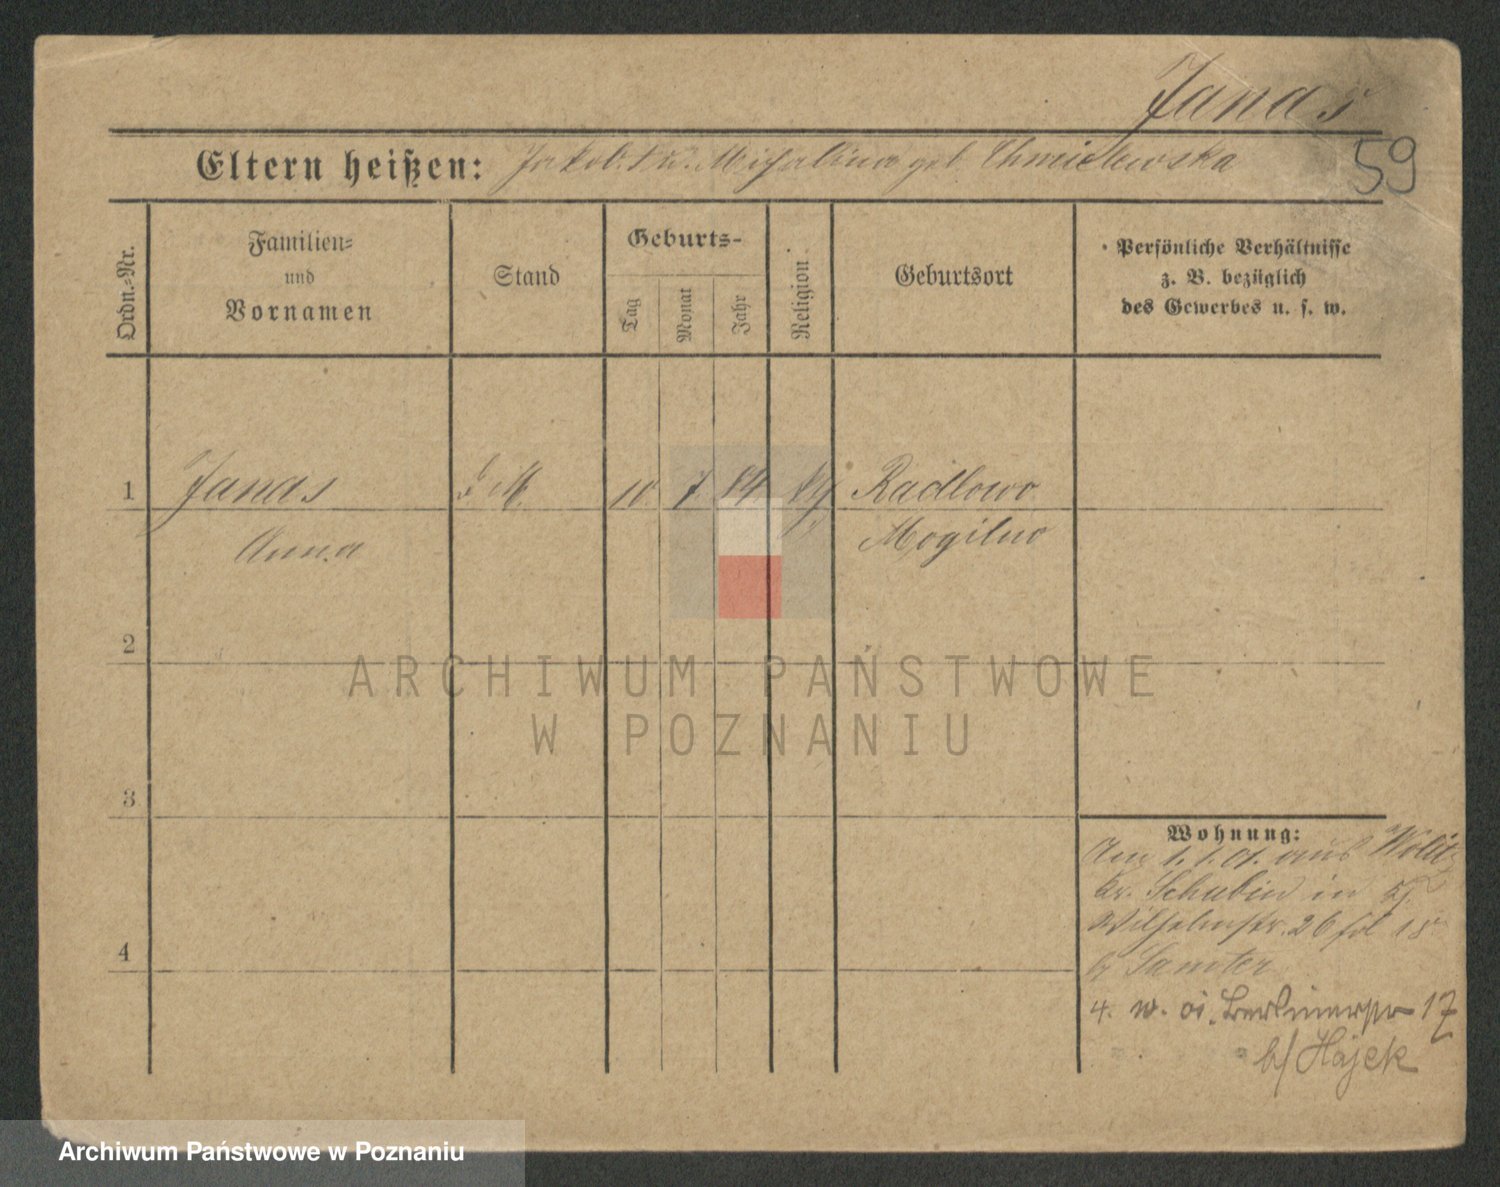 Janas
59
Eltern heißen: Jakob u. Michalina geb. Chmielewska
Ordn.-Nr.
Familien-
und
Vornamen
Stand
Geburts-
Tag
Monat
Jahr
Religion
Geburtsort
Persönliche Verhältnisse
z. B. bezüglich
des Gewerbes u. s. w.
1 Janas M. 10. 7. 84 Radlowo
Anna Mogilno
2
3
4
Wohnung:
Am 1. 1. 01. aus
Kr. Schubin in
Wilhelmstr. 26
Samter
4. Berlinerstr 17
b/ Hajek
ARCHIWUM PAŃSTWOWE
W POZNANIU
Archiwum Państwowe w Poznaniu